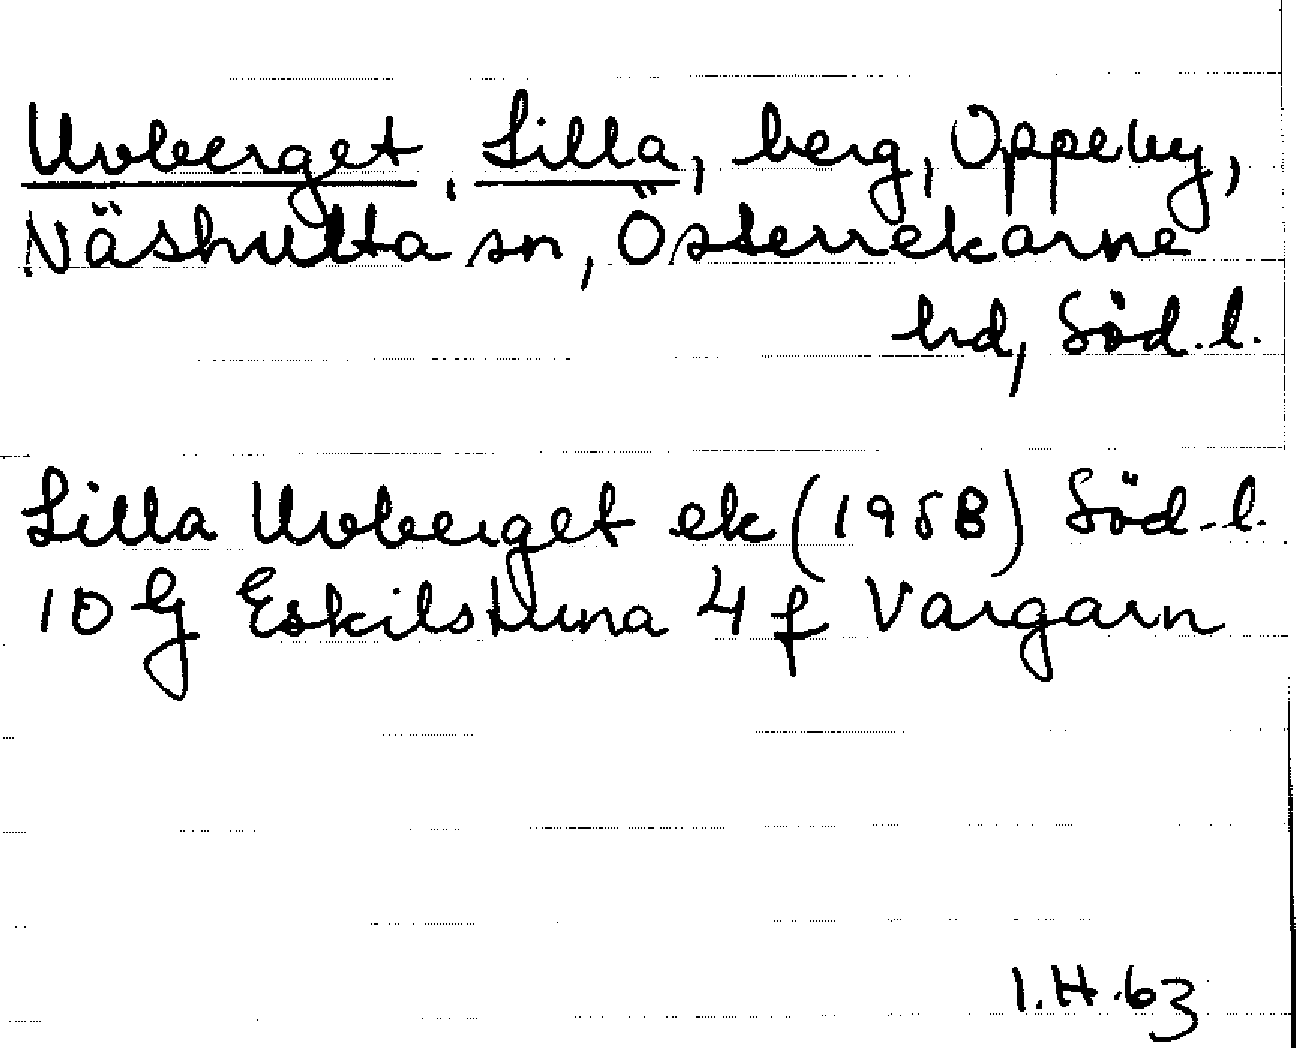 Uvberget, Lilla, berg, Oppeby,
Näshulta sn, Österrekarne
hd, Söd. l.
Lilla Uvberget ek (1958) Söd. l.
10 G Eskilstuna 4 f Vargarn
I.H. 63